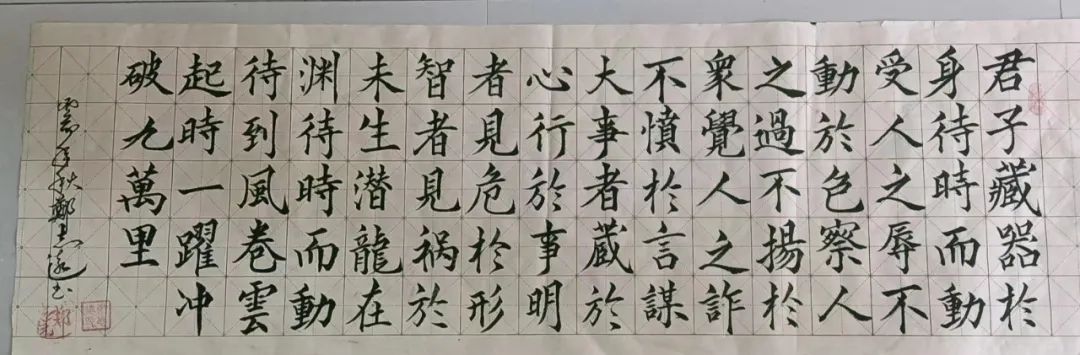 君子藏器於
身待時而動
受人之辱不
動於色察人
之過不揚於
衆覺人之詐
不憤於言謀
大事者藏於
心行於事明
者見危於形
智者見祸於
未生潜龍在
渊待時而動
待到風卷雲
起時一躍冲
破九萬里
秋鄭志遠书